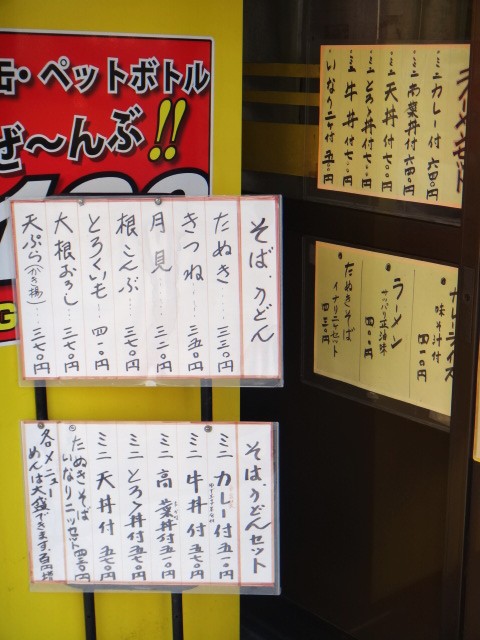 缶・ペットボトル
ぜ〜んぶ!!
そば・うどん
たぬき……三三〇円
きつね……三五〇円
月見……三二〇円
根こんぶ……三七〇円
とろくいも…四一〇円
大根おろし…三七〇円
天ぷら(かき揚)…三七〇円
そば・うどんセット
ミニカレー付五一〇円
ミニ牛丼付五七〇円
ミニ高菜丼付五一〇円
ミニとろろ丼付五七〇円
ミニ天丼付五七〇円
たぬきそば
いなり二ヶセット四三〇円
各メニュー
めんは大盛できます。百円増
ラーメンセット
・ミニカレー付六四〇円
・ミニ高菜丼付六四〇円
・ミニ天丼付七〇〇円
・ミニとろろ丼付七〇〇円
・ミニ牛丼付七〇〇円
・いなり二ヶ付五
カレーライス
味噌汁付
ラーメン
サッパリ正油味
四〇〇円
たぬきそば
イナリ二ヶセット
四三〇円